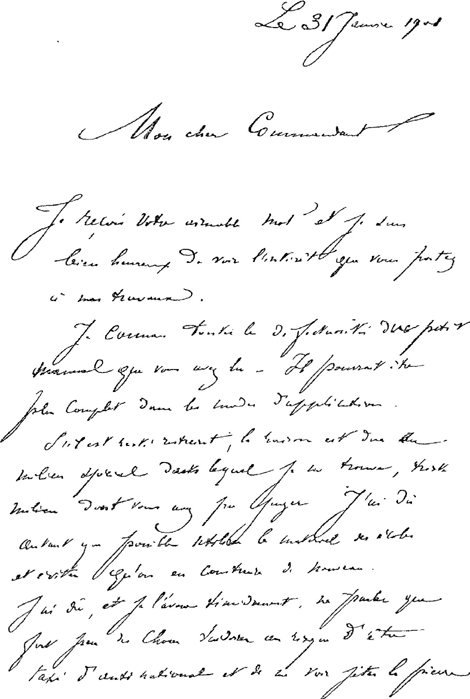 Le 31 Janvier 1901
Mon cher Commandant
Je reçois votre aimable mot et je suis
bien heureux de voir l'intérêt que vous portez
à mes travaux.
Je connais toute la défectuosité du petit
manuel que vous avez lu – Il pourrait être
plus complet dans les modes d'application.
S'il est resté restreint, la raison est due au
milieu spécial dans lequel je me trouve, triste
milieu dont vous avez pu juger J'ai dû
autant que possible utiliser le matériel des écoles
et éviter qu'on en construise de nouveau.
J'ai dû, et je l'avoue timidement, ne parler que
fort peu de choses au risque d'être
taxé d'anti national et de me voir jeter la pierre